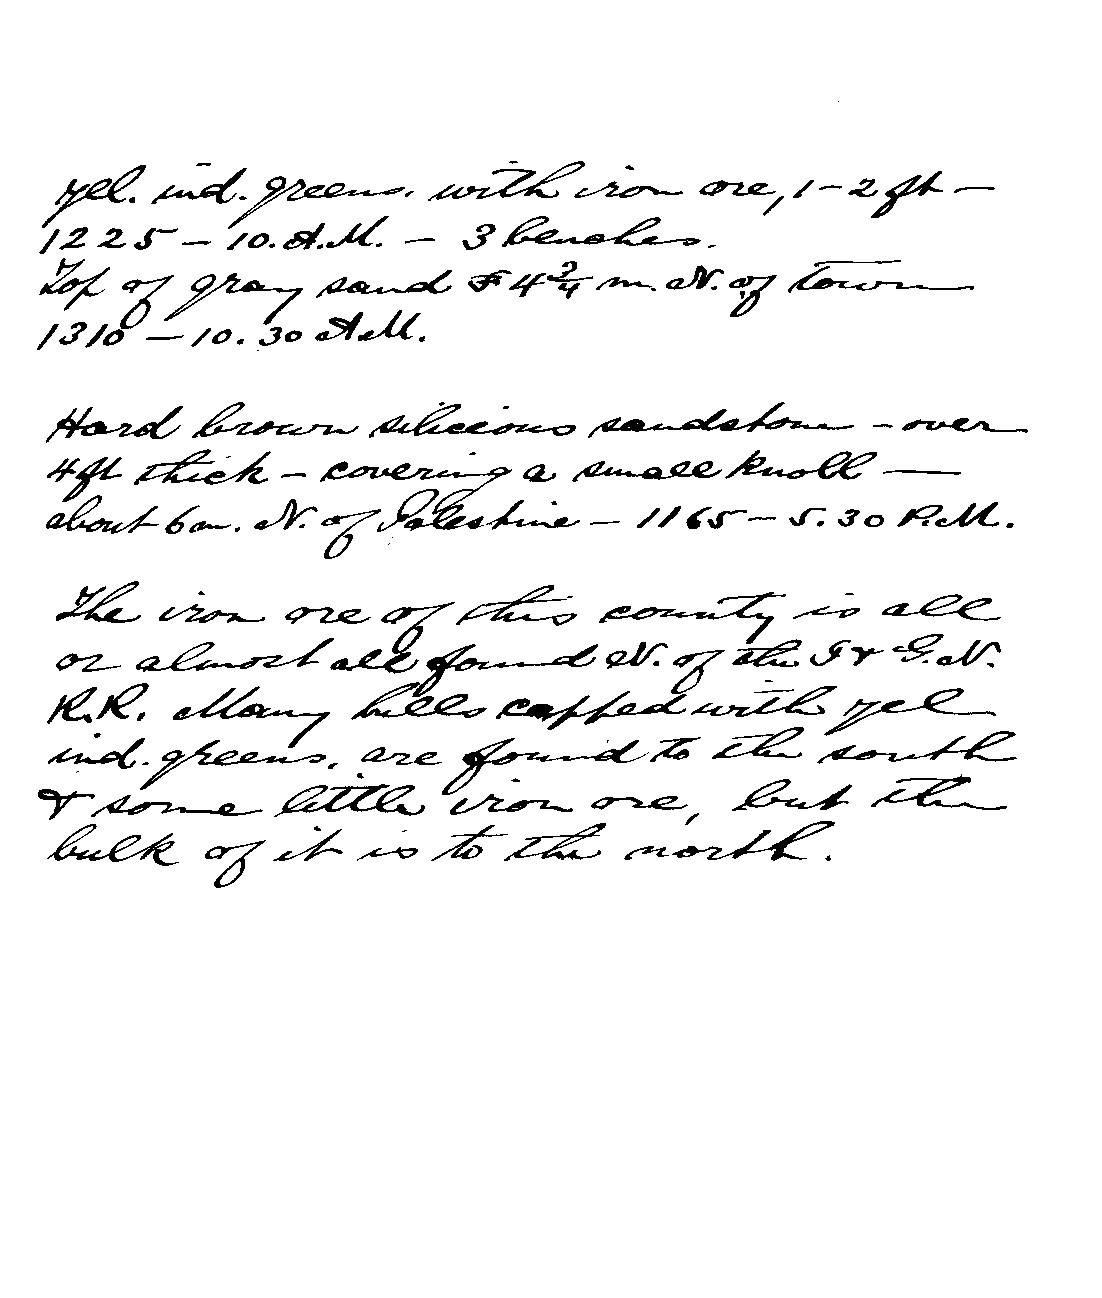 yel. ind. greens. with iron ore, 1-2 ft -
1225 - 10. A.M. - 3 benches.
Top of gray sand 4 3/4 m. N. of town
1310 - 10.30 A.M.
Hard brown silicious sandstone - over
4 ft thick - covering a small knoll -
about 6 m. N. of Palestine - 1165 - 5.30 P.M.
The iron ore of this county is all
or almost all found N. of the I & G. N.
R.R. Many hills capped with yel
ind. greens. are found to the south
& some little iron ore, but the
bulk of it is to the north.